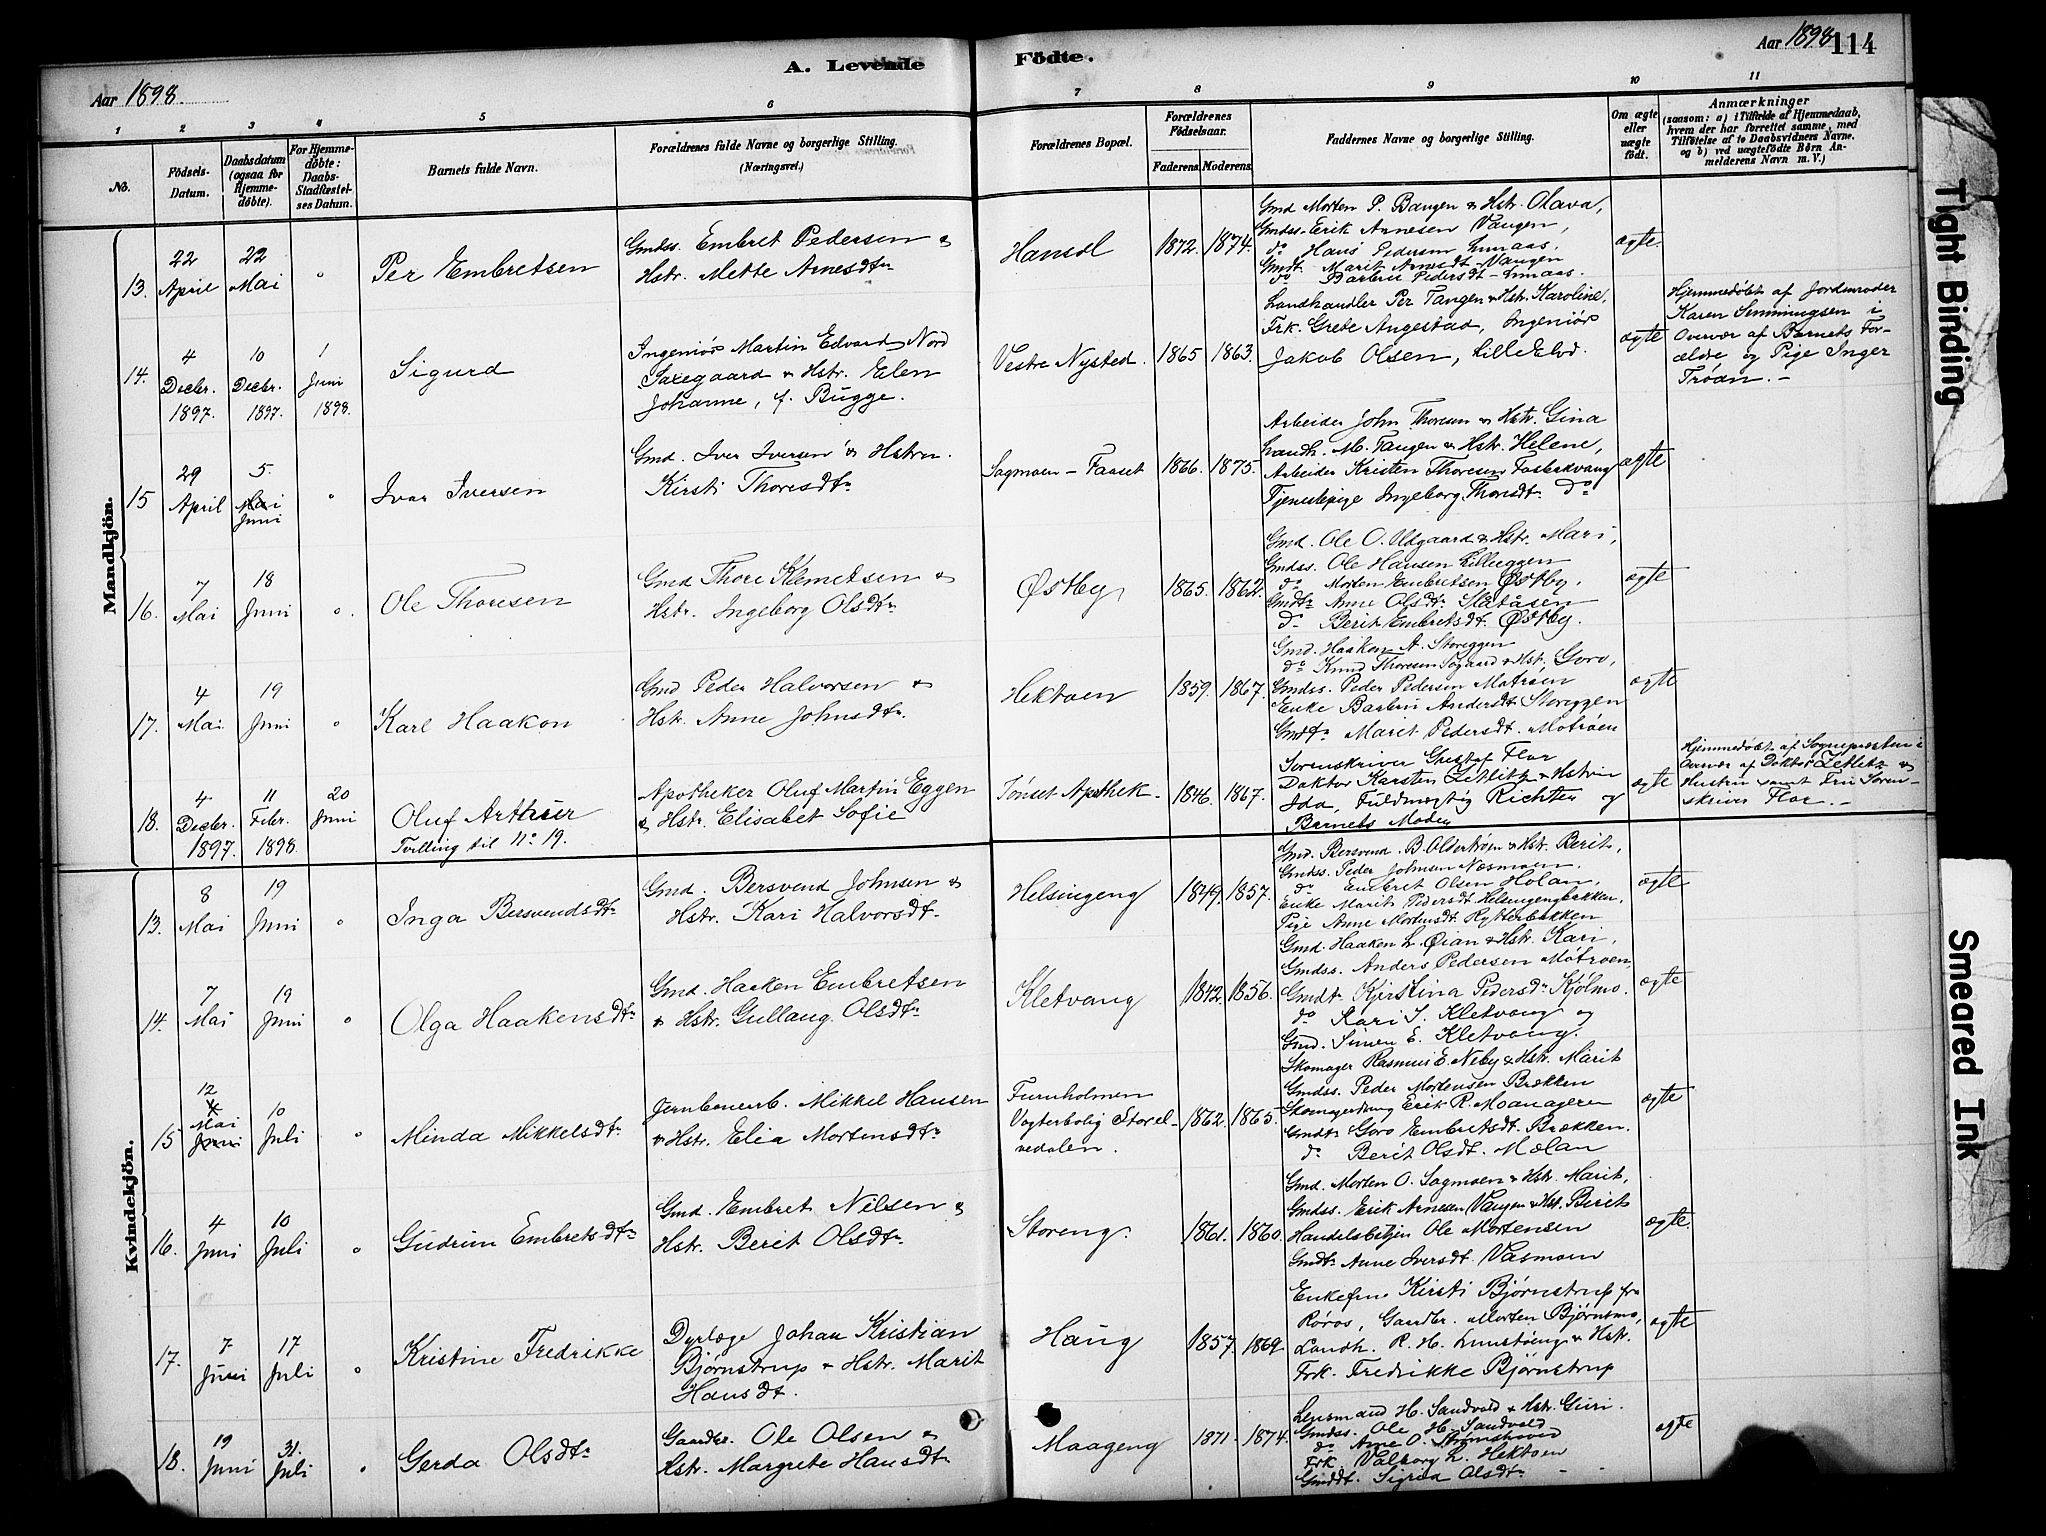 A. Levende Födte.
Aar 1898.
Aar 1898 114
1 2 3 4 5 6 7 8 9 10 11
No.
Födsels-Datum.
Daabsdatum (ogsaa for Hjemme-döbte).
For Hjemme-döbte: Daabs-Stadfæstel-ses Datum.
Barnets fulde Navn.
Forældrenes fulde Navne og borgerlige Stilling.
(Næringsvei.)
Forældrenes Bopæl.
Forældrenes Födselsaar.
Faderens. Moderens.
Faddernes Navne og borgerlige Stilling.
Om ægte eller uægte födt.
Anmærkninger
(saasom: a) i Tilfælde af Hjemmedaab, hvem der har forrettet samme, med Tilföielse af to Daabsvidners Navne. og b) ved uægtefödte Börn Anmelderens Navn m. V.)
Mandkjön.
13. 22 April 22 Mai " Per Embretsen
Gmdss. Embret Pedersen &
Hstr. Mette Arnesdtr
Hansöl 1872. 1874.
Gmd Morten P. Bangen & Hstr. Olava,
Gmdss. Erik Arnesen Vangen,
do Hans Pedersen Lunaas.
Gmdt. Marit Arnesdt. Vangen
do Barbru Pedersdt. Lunaas.
ægte
14. 4 Decbr. 1897. 10 Decbr. 1897. 1 Juni 1898. Sigurd
Ingeniör Martin Edvard Nord
Saxegaard & Hstr. Elen
Johanne, f. Bugge.
Vestre Nysted. 1865 1863.
Landhandler Per Tangen & Hstr. Karoline,
Frk. Grete Angestad, Ingeniör
Jakob Olsen, Lille Elvd.
ægte
Hjemmedöbt af Jordemoder
Karen Simmingsen i
Overvær af Barnets For-
ældre og Pige Inger
Tröan. -
15 29 April 5. Mai Juni " Ivar Iversen
Gmd. Iver Iversen & Hstru.
Kirsti Thoresdtr
Sagmoen - Faaset 1866. 1875.
Arbeider John Thoresen & Hstr. Gina
Landh. M. Tangen & Hstr. Helene,
Arbeider Kristen Thoresen Fosbakvang
Tjenestepige Ingeborg Thorsdt. do
ægte
16. 7 Mai 18 Juni " Ole Thoresen
Gmd Thore Klemetsen &
Hstr. Ingeborg Olsdtr
Østby 1865. 1862.
Gmd. Ole O. Udgaard & Hstr. Mari,
Gmdss. Ole Hansen Lilleeggen
do Morten Embretsen Østby.
Gmdtr Anne Olsdtr Slåtåsen
do Berit Embretsdt. Østby.
ægte
17. 4 Mai. 19 Juni " Karl Haakon
Gmd Peder Halvorsen &
Hstr. Anne Johnsdtr.
Hektoen 1859. 1867.
Gmd. Haaken A. Storeggen
do Knud Thoresen Togaard & Hst. Goro,
Gmdss. Peder Pedersen Motröen
Enke Barbru Andersdt Storeggen
Gmdtr Marit Pedersdt. Motröen
ægte
18. 4 Decbr. 1897. 11 Febr. 1898. 20 Juni Oluf Arthur
Tvilling til No 19.
Apotheker Oluf Martin Eggen
& Hstr. Elisabet Sofie
Tönset Apothek. 1846. 1867.
Sorenskriver Gustaf Flor
Doktor Karsten Zetlitz & Hstru
Ida, Fuldmægtig Richter og
Barnets Moder
ægte
Hjemmedöbt af Sognepresten i
Overvær af Doktor Zetlitz &
Hustru samt Fru Soren-
skriver Flor. -
Kvindekjön.
13. 8 Mai 19 Juni " Inga Bersvendsdtr
Gmd. Bersvend Johnsen &
Hstr. Kari Halvorsdt.
Helsingeng 1849. 1857.
Gmd. Bersvend B. Oldertröen & Hstr. Berit,
Gmdss. Peder Johnsen Næsmoen.
do Embret Olsen Holan,
Enke Marit Pedersdt. Helsingengbakken.
Pige Anne Mortensdt. Rytterbakken
ægte
14. 7 Mai 19 Juni " Olga Haakensdtr
Gmd. Haaken Embretsen
& Hstr. Gullaug Olsdtr
Kletvang 1842. 1856.
Gmd. Haaken L. Øian & Hstr. Kari,
Gmdss. Anders Pedersen Motroen,
Gmdtr. Kjirstina Pedersdr Kjölmo.
do Kari S. Kletvang og
Gmd. Simen E. Kletvang.
ægte
15 12 Mai Juni 10 Juli " Minda Mikkelsdtr
Jernbanearb. Mikkel Hansen
& Hstr. Elia Mortensdtr
Furuholmen
Vogterbolig Storel-
vedalen. 1862. 1865.
Skomager Rasmus E. Neby & Hstr. Marit
Gmdss. Peder Mortensen Brækken
Skomagersvend Erik R. Moanageren
Gmdtr Goro Embretsdt. Brækken.
do Berit Olsdt. Mælan
ægte
16. 4 Juni 10 Juli " Gudrun Embretsdtr
Gmd. Embret Nilsen &
Hstr. Berit Olsdtr.
Storeng. 1861. 1860.
Gmd. Morten O. Sagmoen & Hstr. Marit,
Gmdss. Erik Arnesen Vangen & Hst. Berit
Handelsbetjen Ole Mortensen
Gmdtr Anne Iversdt. Vasmoen
ægte.
17. 7. Juni 17 Juli " Kristine Fredrikke
Dyrlæge Johan Kristian
Bjørnstrup & Hstr. Marit
Hansdt.
Haug 1857. 1869
Enkefru Kirsti Bjørnstrup fra
Röros, Gaardbr. Morten Björnsmo,
Landh. R. H. Lunstöeng & Hstr.
Frk. Fredrikke Bjørnstrup
ægte
18. 19 Juni 31. Juli " Gerda Olsdtr
Gaardbr. Ole Olsen &
Hstr. Margrete Hansdtr
Maageng 1871. 1874.
Lensmand H. Sandvold & Hstr. Guri.
Gmdss. Ole H. Sandvold
do Arne O.
Frk. Valborg L. Hektoen
Gmddt. Sigrid Olsdtr
ægte
Tight Binding
Smeared Ink